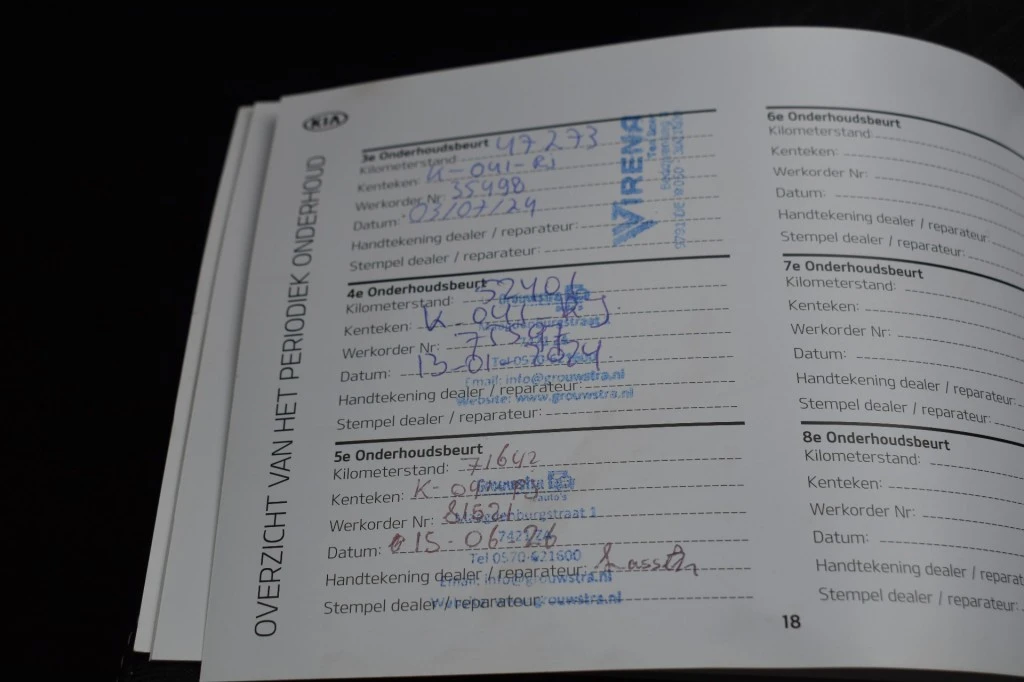 KIA
OVERZICHT VAN HET PERIODIEK ONDERHOUD
3e Onderhoudsbeurt
Kilometerstand: 47273
Kenteken: K-041-RJ
Werkorder Nr: 35498
Datum: 03/07/24
Handtekening dealer / reparateur:
Stempel dealer / reparateur:
WIRENA
4e Onderhoudsbeurt
Kilometerstand: 52406
Kenteken: K-041-RJ
Werkorder Nr:
Datum: 13-01-2024
Handtekening dealer / reparateur:
Stempel dealer / reparateur:
Email: info@grouwstra.nl
Website: www.grouwstra.nl
5e Onderhoudsbeurt
Kilometerstand: 71642
Kenteken: K-041-RJ
Werkorder Nr: 81521
Datum: 15-06-26
Handtekening dealer / reparateur:
Stempel dealer / reparateur:
Maagdenburgstraat 1
Tel 0570-621600
Email: info@grouwstra.nl
Website: www.grouwstra.nl
6e Onderhoudsbeurt
Kilometerstand:
Kenteken:
Werkorder Nr:
Datum:
Handtekening dealer / reparateur:
Stempel dealer / reparateur:
7e Onderhoudsbeurt
Kilometerstand:
Kenteken:
Werkorder Nr:
Datum:
Handtekening dealer / reparateur:
Stempel dealer / reparateur:
8e Onderhoudsbeurt
Kilometerstand:
Kenteken:
Werkorder Nr:
Datum:
Handtekening dealer / reparat
Stempel dealer / reparateur:
18